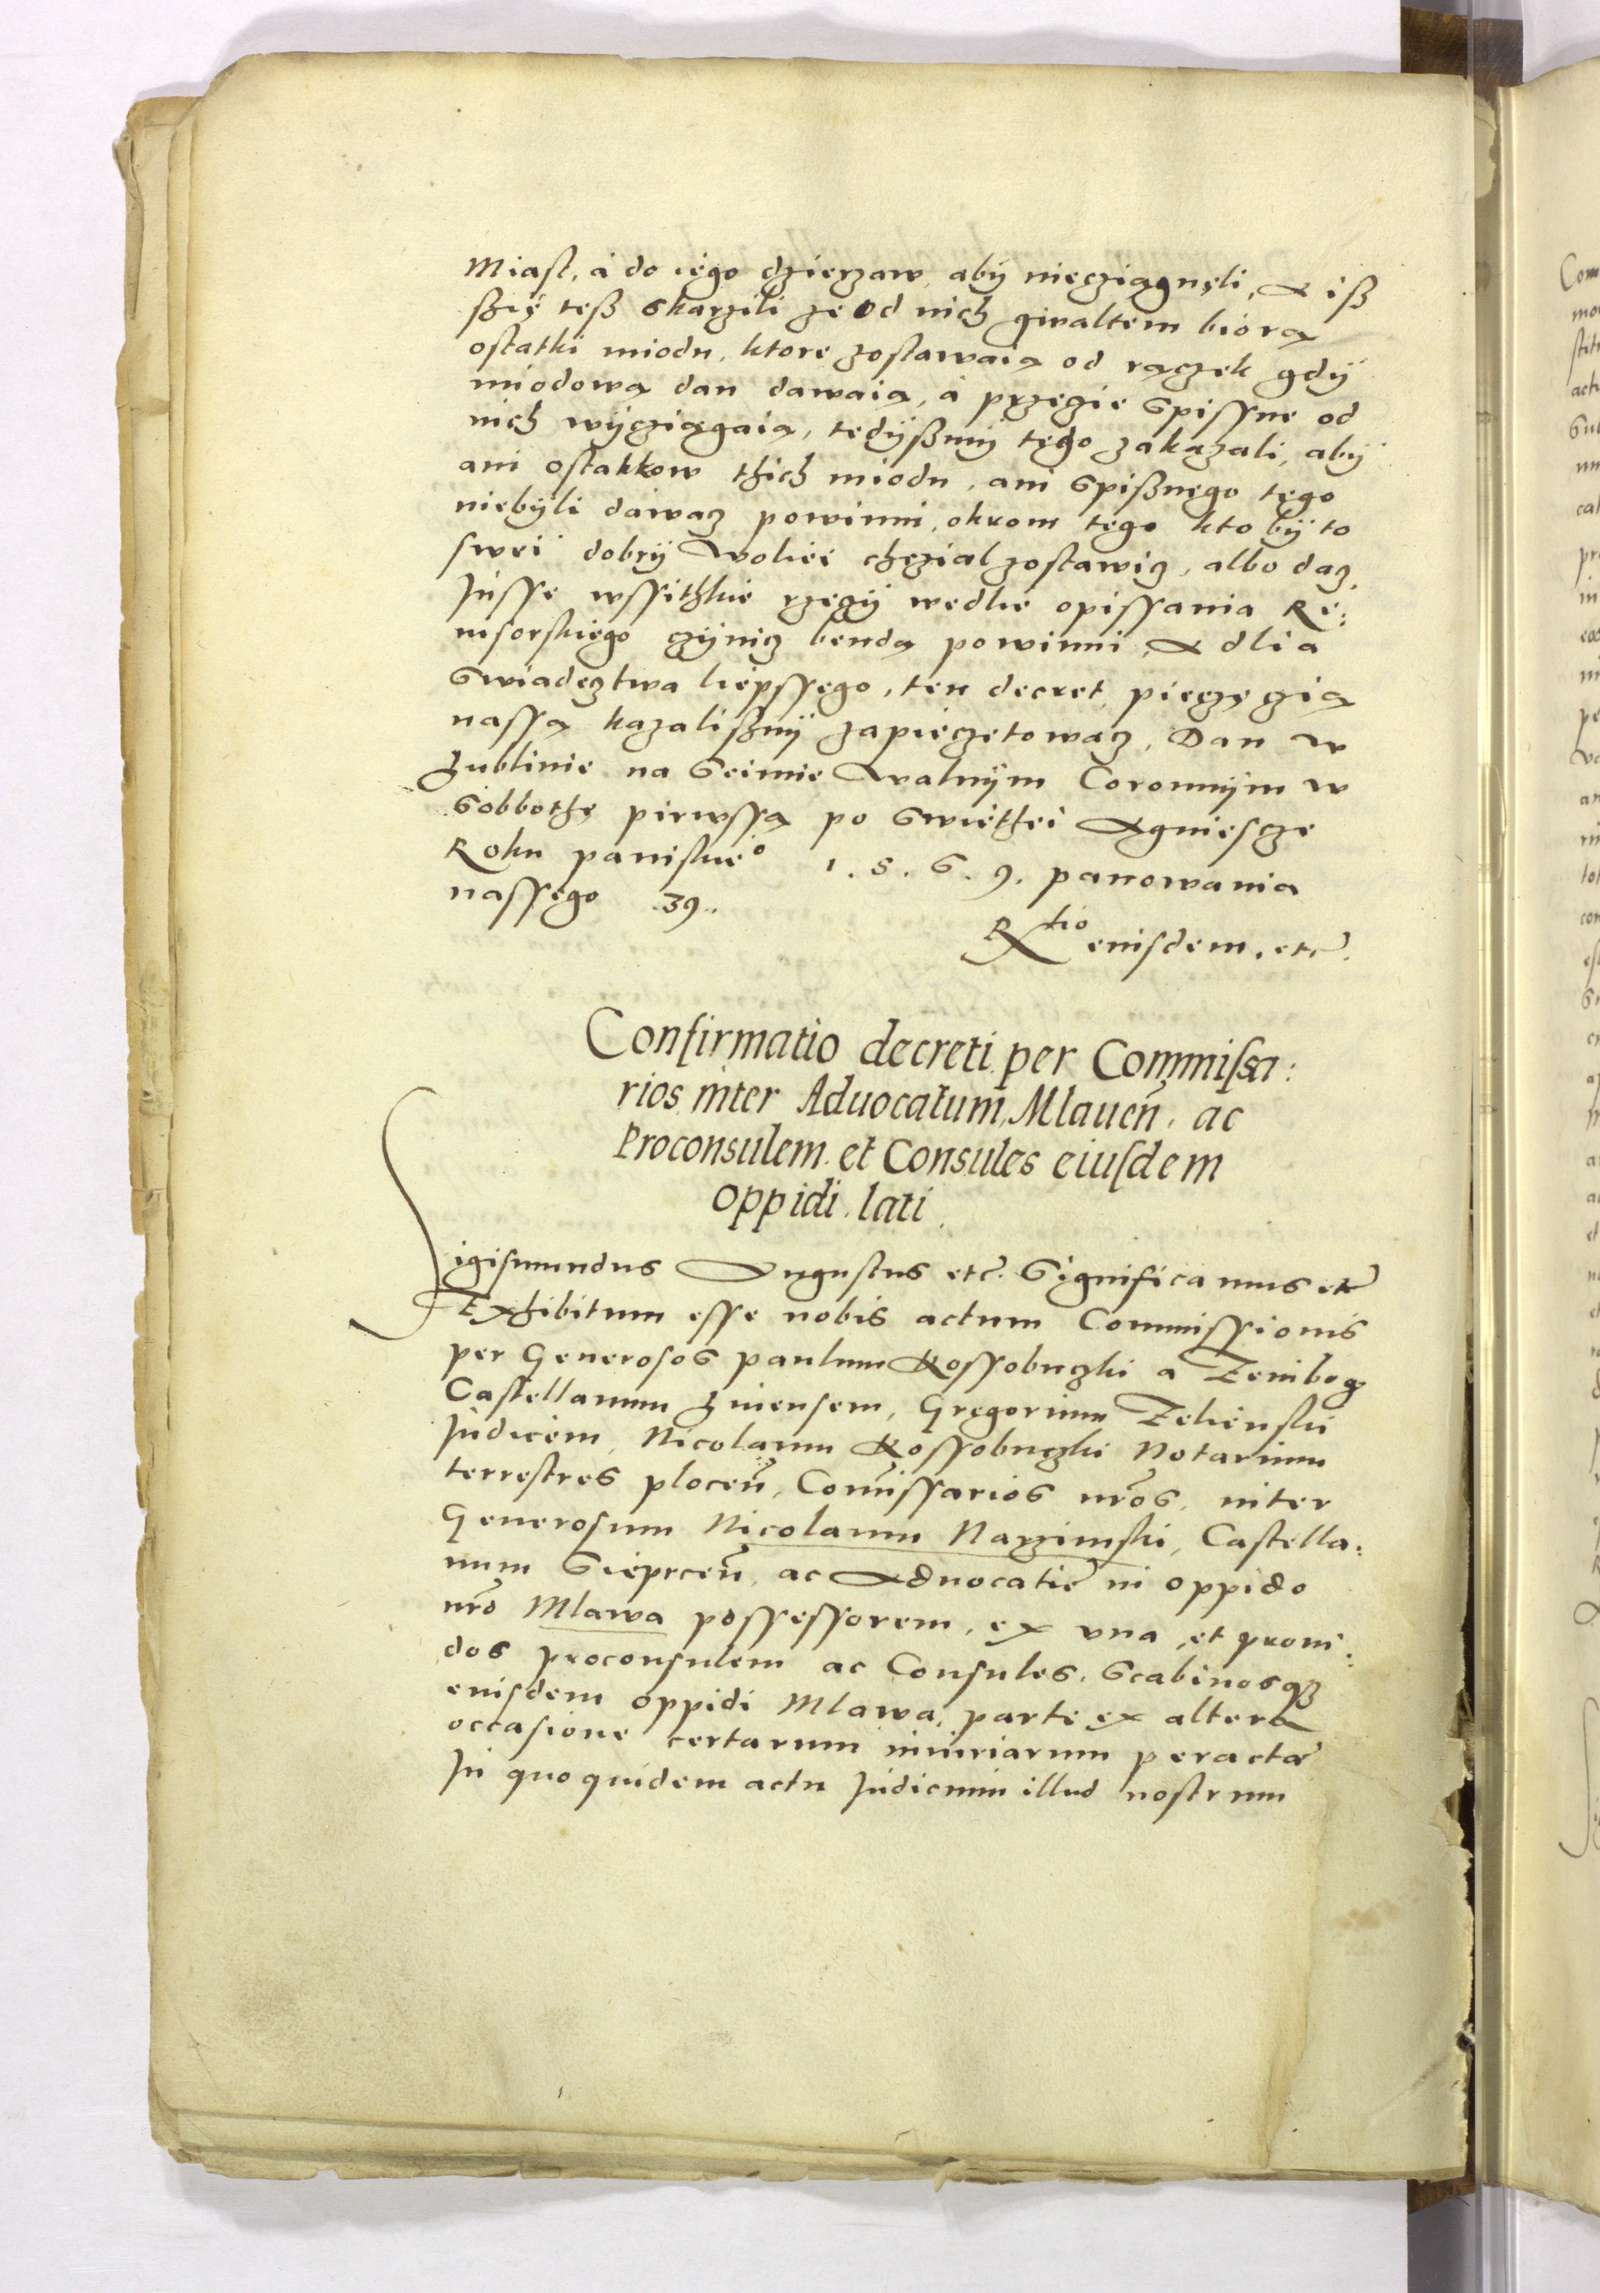 Miast, á do iego dzierzaw, aby niecziągnęli, A iß
szię teß skarzili ze od nich gwaltem biorą
ostatki miodu, ktore zostawaią od rączek gdy
miodową dan dawaią, á przezie Spissne od
nich wycziągaią, tedysmy tego zakazali, aby
ani ostatkow thich miodu, ani Spißnego tego
niebyli dawacz powinni, okrom tego kto by to
swei dobry woliei chczial zostawicz, albo dacz,
Jnsse wssithkie rzeczy wedlie opissania Re:
uisorskiego czynicz bendą powinni, A dlia
Swiadecztwa liepssego, ten decret pieczęczią
nassą kazalismy zapieczetowacz, Dan w
Lublinie na Seimie Walnym Coronnym w
Sobbothę pirwssą po Swiethei Agniescze
Roku panskieo 1.5.6.9. panowania
nassego .39..
Rtio eiusdem. etc.
Confirmatio decreti per Commissa:
rios inter Aduocatum Mlauen. ac
Proconsulem et Consules eiusdem
oppidi lati.
Sigismundus Augustus etc. Significamus etc
Exhibitum esse nobis actum Commissionis
per Generosos paulum Kossobuczki a
Castellanum Gregorium Zelienski
Judicem, Nicolaum Kossobuczki Notarium
terrestres plocen, Comissarios nros, inter
Generosum Nicolaum Narzimski, Castella:
num Sieprcen, ac Aduocatie in oppido
nro Mlawa possessorem, ex vna, et proui:
dos proconsulem ac Consules, Scabinosq3
eiusdem oppidi Mlawa, parte ex altera
occasione certarum iniuriarum peracta
In quo quidem actu Judicium illud nostrum
Com